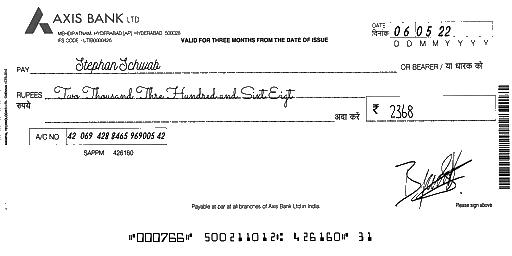 AXIS BANK LTD
MEHDIPATNAM, HYDERABAD [AP] - HYDERABAD 500028
IFS CODE : UTIB0000426
VALID FOR THREE MONTHS FROM THE DATE OF ISSUE
DATE
दिनांक 06 05 22
D D M M Y Y Y Y
PAY Stephan Schwab OR BEARER / या धारक को
RUPEES Two Thousand Thre Hundred and Sixt Eigt
रुपये अदा करें ₹ 2368
A/C NO 42 069 428 8465 969005 42
SAPPM 426160
Payable at par at all branches of Axis Bank Ltd in India.
Please sign above
"000766" 500211012: 426160" 31